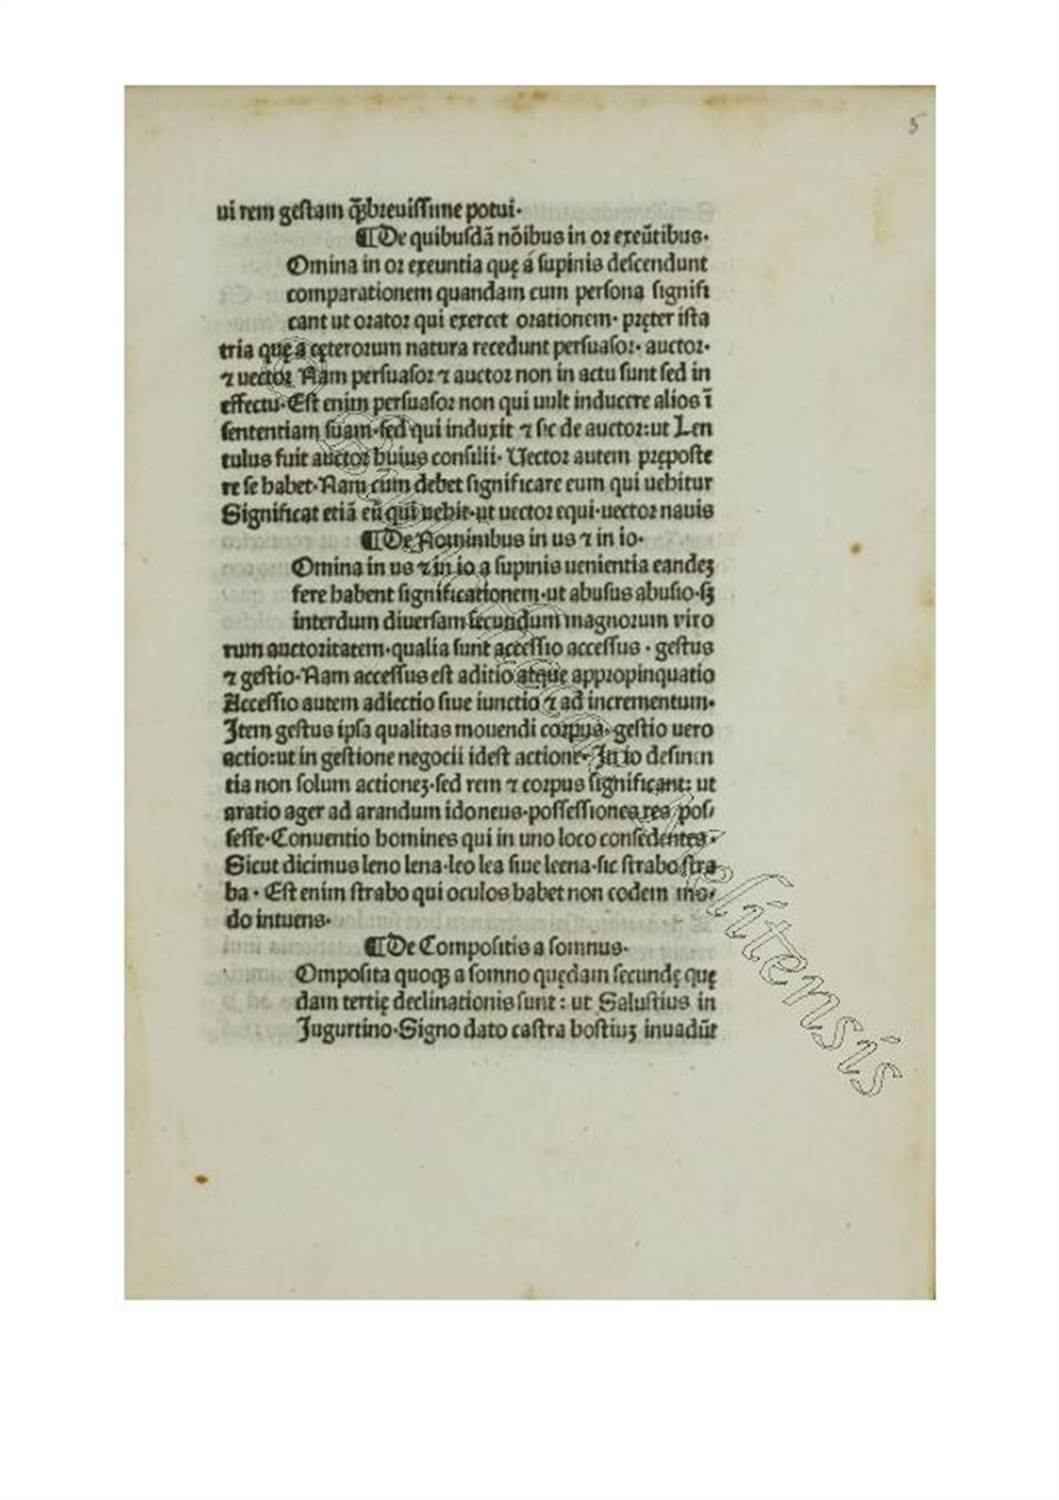 5
ui rem gestam q̄ꝫbreuissime potui·
¶De quibusdā nōibus in or exeūtibus·
Omina in or exeuntia quę á supinis descendunt
comparationem quandam cum persona signifi
cant ut orator qui exercet orationem· pręter ista
tria quę a cęterorum natura recedunt persuasor· auctor·
⁊ uector Nam persuasor ⁊ auctor non in actu sunt sed in
effectu·Est enim persuasor non qui uult inducere alios ī
sententiam suam·sed qui induxit ⁊ sic de auctor:ut Len
tulus fuit auctor huius consilii· Uector autem pręposte
re se habet·Nam cūm debet significare eum qui uehitur
Significat etiā eū qui uehit·ut uector equi·uector nauis
¶De Nominibus in us ⁊ in io·
Omina in us ⁊ in io a supinis uenientia eandeꝫ
fere habent significationem·ut abusus abusio·sꝫ
interdum diuersam secundum magnorum viro
rum auctoritatem·qualia sunt accessio accessus · gestus
⁊ gestio·Nam accessus est aditio atque appropinquatio
Accessio autem adiectio siue iunctio ⁊ ad incrementum·
Item gestus ipsa qualitas mouendi corpus· gestio uero
actio:ut in gestione negocii idest actione· In io desinen
tia non solum actioneꝫ·sed rem ⁊ corpus significant: ut
aratio ager ad arandum idoneus·possessiones res pos/
sesse·Conuentio homines qui in uno loco consēdentes·
Sicut dicimus leno lena·leo lea siue leena·sic strabo stra
ba· Est enim strabo qui oculos habet non eodem mo/
do intuens·
¶De Compositis a somnus·
Omposita quoqꝫ a somno quędam secundę quę
dam tertię declinationis sunt: ut Salustius in
Jugurtino·Signo dato castra hostiuꝫ inuadūt